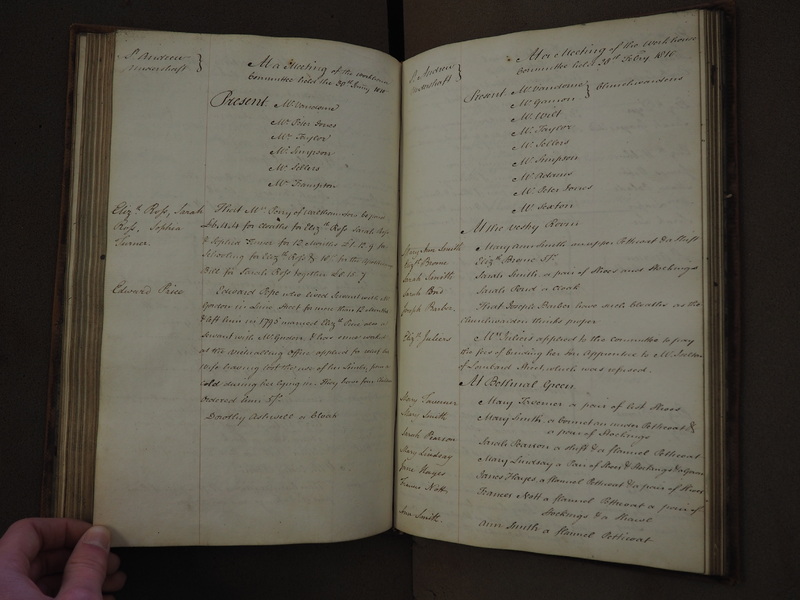 St. Andrew
Undershaft
At a Meeting of the workhouse
Committee held the
Present Mr Vandome
Mr Peter Jones
Mr Taylor
Mr Simpson
Mr Sellers
Mr Frampton
Elizth Ross, Sarah
Ross, Sophia
Turner.
That Mrs Perry of Walthamstow be paid
for Cloaths for Elizth Ross Sarah Ross
& Sophia Turner for 12 Months
Schooling for Elizth Ross & for the
Bill for Sarah Ross together
Edward Price
Edward who lived Servant with Mr
Gordon in Lime Street for more than 12 Months
& left him in 1795 married Elizth who was a
Servant with Mr & has some work
at the Victualling Office applied for relief his
wife having lost the use of her Limbs, from a
cold during her lying in they have four Children
Ordered him 5/-
Dorothy Ashwell a Cloak
St. Andrew
Undershaft
At a Meeting of the workhouse
Committee held 28th Feby 1810
Present Mr Vandome Churchwardens
Mr Gannon
Mr Wilt
Mr Taylor
Mr Sellers
Mr Simpson
Mr Adams
Mr Peter Jones
Mr Sexton
At the Vestry Room
Mary Ann Smith Mary Ann Smith an upper Petticoat & a Shift
Elizth Browne Elizth Browne 5/-
Sarah Smith Sarah Smith a pair of Shoes and Stockings
Sarah Sarah a Cloak
Joseph Barber That Joseph Barber have such Cloaths as the
Churchwarden thinks proper
Elizth Juliers Mrs Juliers applied to the Committee to pay
the fees of binding her Son Apprentice to Mr
of Street, which was refused.
At Bethnal Green
Mary Mary a pair of list Shoes
Mary Smith Mary Smith a Gown an under Petticoat &
a pair of Stockings
Sarah Pearson Sarah Pearson a Shift & a flannel Petticoat
Mary Lindsay Mary Lindsay a Pair of Shoes & Stockings & a Gown
Jane Hayes Jane Hayes a flannel Petticoat & a pair of Shoes
Frances Nott Frances Nott a flannel Petticoat a pair of
Stockings & a Shawl
Ann Smith Ann Smith a flannel Petticoat